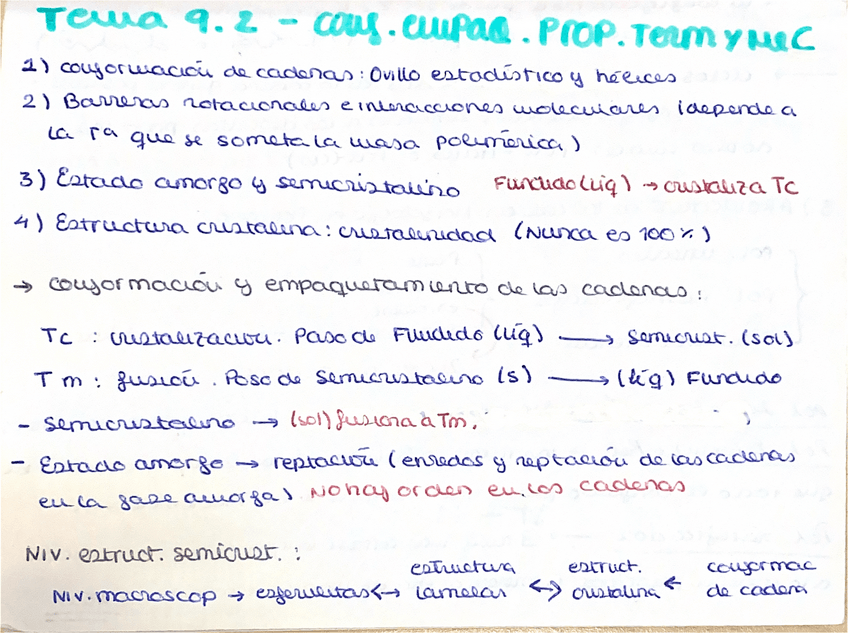 Tema 9.2 - conf. empaq. prop. Term y Mec
1) conformación de cadenas: Ovillo estadístico y hélices
2) Barreras rotacionales e interacciones moleculares (depende a
la Tª que se someta la masa polimérica)
3) Estado amorfo y semicristalino Fundido (líq) → cristaliza Tc
4) Estructura cristalina: cristalinidad (Nunca es 100%)
→ conformación y empaquetamiento de las cadenas:
Tc : cristalización. Paso de Fundido (líq) → semicrist. (sol)
Tm : fusión. Paso de semicristalino (s) → (líq) Fundido
- semicristalino → (sol) fusiona a Tm.
- Estado amorfo → reptación (enredos y reptación de las cadenas
en la fase amorfa) No hay orden en los cadenas
Niv. estruct. semicrist. :
Niv. macroscop → esferulitas ↔ estructura lamelar ↔ estruct. cristalina ← conformac de cadena